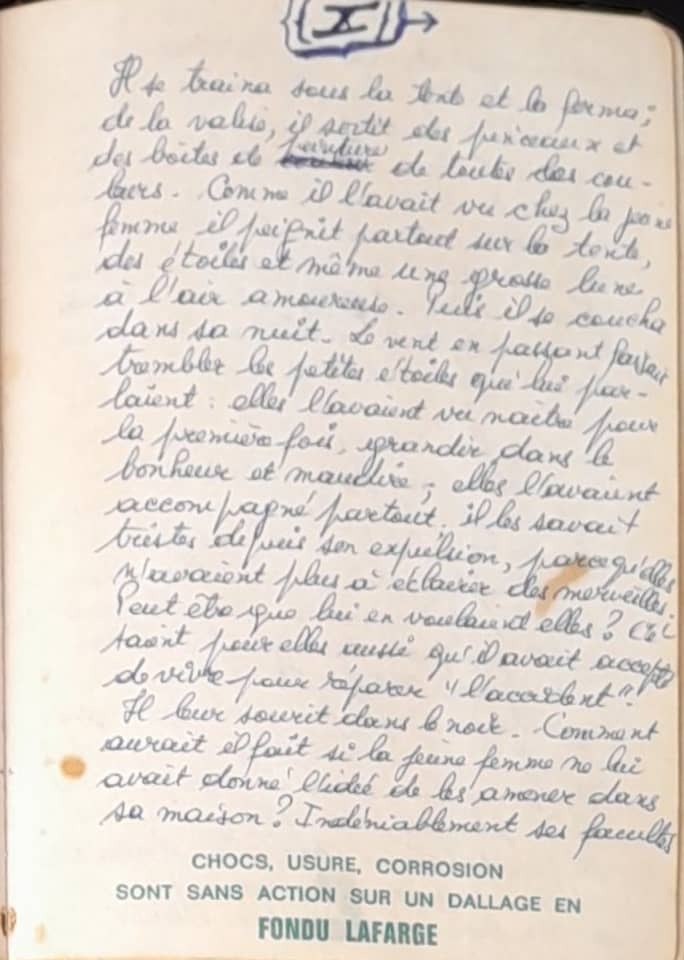 X
Il se traina sous la tente et la ferma ;
de la valise, il sortit des pinceaux et
des boites de peinture de toutes les cou-
leurs. Comme il l'avait vu chez la jeune
femme il peignit partout sur la tente,
des étoiles et même une grosse lune
à l'air amoureuse. Puis il se coucha
dans sa nuit. Le vent en passant faisait
trembler les petites étoiles qui lui par-
laient : elles l'avaient vu naître pour
la première fois, grandir dans le
bonheur et maudire ; elles l'avaient
accompagné partout, il les savait
tristes depuis son expulsion, parcequ'elles
n'avaient plus à éclairer des merveilles.
Peut être que lui en voulaient elles ? C'é
taient pour elles aussi qu'il avait accepté
de vivre pour réparer "l'accident".
Il leur sourit dans le noir. Comment
aurait il fait si la jeune femme ne lui
avait donné l'idée de les amener dans
sa maison ? Indéniablement ses facultés
CHOCS, USURE, CORROSION
SONT SANS ACTION SUR UN DALLAGE EN
FONDU LAFARGE